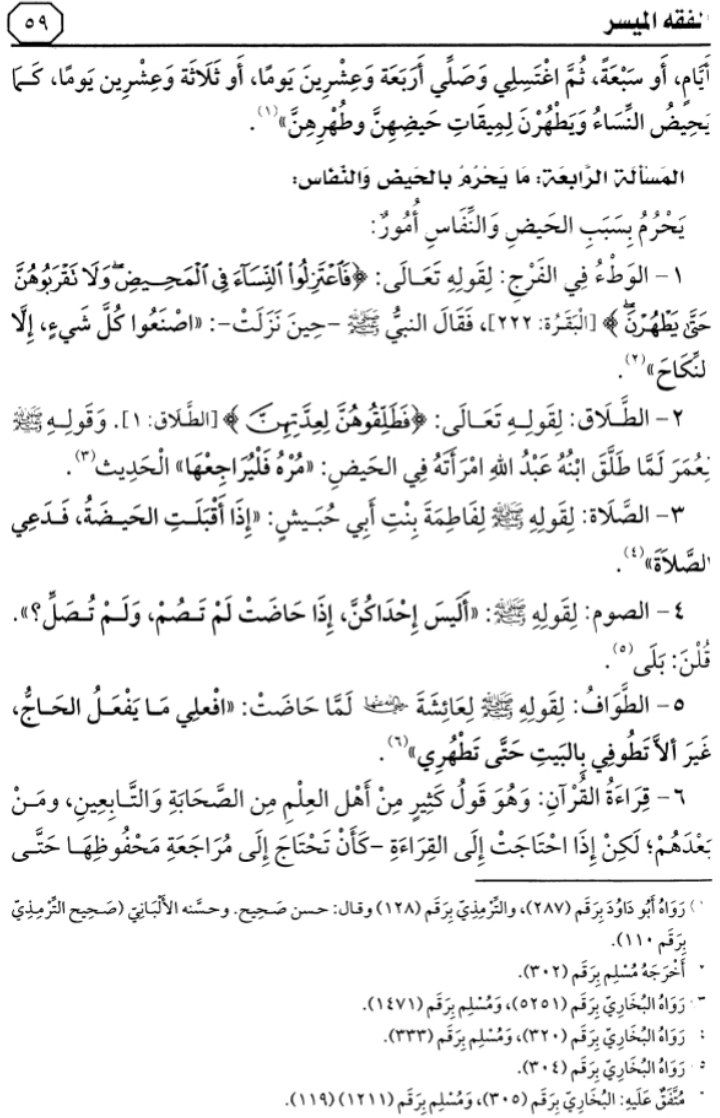 الفقه الميسر
٥٩
أَيَّامٍ، أَو سَبْعَةً، ثُمَّ اغْتَسِلِي وَصَلِّي أَرْبَعَةً وَعِشْرِينَ يَومًا، أَو ثَلَاثَة وَعِشْرِين يَومًا، كَـمَا
يَحِيضُ النِّسَاءُ وَيَطْهُرْنَ لِمِيقَاتِ حَيضِهِنَّ وطُهْرِهِنَّ»(١).
المَسْألة الرَّابعَة: مَا يَحْرُمُ بالحَيْض وَالنِّفَاس:
يَحْرُمُ بِسَبَبِ الحَيضِ وَالنِّفَاسِ أُمُورٌ:
١- الوَطْءُ فِي الفَرْجِ: لِقَولِهِ تَعَالَى: ﴿فَٱعْتَزِلُوا۟ ٱلنِّسَآءَ فِى ٱلْمَحِيضِ ۖ وَلَا تَقْرَبُوهُنَّ
حَتَّىٰ يَطْهُرْنَ ۖ﴾ [الْبَقَرَة: ٢٢٢]، فَقَالَ النبيُّ ﷺ -حِينَ نَزَلَتْ-: «اصْنَعُوا كُلَّ شَيءٍ، إِلَّا
لنِّكَاحَ»(٢).
٢- الطَّـلَاق: لِقَولِـهِ تَعَـالَى: ﴿فَطَلِّقُوهُنَّ لِعِدَّتِهِنَّ﴾ [الطَّلَاق: ١]. وَقَولِـهِ ﷺ
لِعُمَرَ لَمَّا طَلَّقَ ابْنُهُ عَبْدُ اللهِ امْرَأَتَهُ فِي الحَيضِ: «مُرْهُ فَلْيُرَاجِعْهَا» الْحَدِيث(٣).
٣- الصَّلَاة: لِقَولِهِ ﷺ لِفَاطِمَةَ بِنْتِ أَبِي حُبَـيشٍ: «إِذَا أَقْبَلَـتِ الحَيـضَةُ، فَـدَعِي
الصَّلاَةَ»(٤).
٤- الصوم: لِقَولِهِ ﷺ: «أَلَيسَ إِحْدَاكُنَّ، إِذَا حَاضَتْ لَمْ تَـصُمْ، وَلَـمْ تُـصَلِّ؟».
قُلْنَ: بَلَى(٥).
٥- الطَّوَافُ: لِقَولِهِ ﷺ لِعَائِشَةَ رضي الله عنها لَمَّا حَاضَتْ: «افْعلِي مَـا يَفْعَـلُ الحَـاجُّ،
غَيرَ ألاَّ تَطُوفِي بِالبَيتِ حَتَّى تَطْهُرِي»(٦).
٦- قِرَاءَةُ القُرْآنِ: وَهُوَ قَولُ كَثِيرٍ مِنْ أَهْلِ العِلْمِ مِن الصَّحَابَةِ وَالتَّـابِعِينِ، ومَـنْ
بَعْدَهُمْ؛ لَكِنْ إِذَا احْتَاجَتْ إِلَى القِرَاءَةِ -كَأَنْ تَحْتَاجَ إِلَى مُرَاجَعَةِ مَحْفُوظِهَـا حَتَّـى
١) رَوَاهُ أَبُو دَاوُدَ بِرَقَم (٢٨٧)، والتِّرْمِذِيّ بِرَقَم (١٢٨) وقال: حسن صَحِيح. وحسَّنه الأَلْبَانِيّ (صَحِيح التِّرْمِذِيّ
بِرَقَم ١١٠).
٢ أَخْرَجَهُ مُسْلِم بِرَقَم (٣٠٢).
٣ رَوَاهُ البُخَارِيّ بِرَقَم (٥٢٥١)، وَمُسْلِم بِرَقَم (١٤٧١).
٤ رَوَاهُ البُخَارِيّ بِرَقَم (٣٢٠)، وَمُسْلِم بِرَقَم (٣٣٣).
٥ رَوَاهُ البُخَارِيّ بِرَقَم (٣٠٤).
٦ مُتَّفَقٌ عَلَيهِ: البُخَارِيّ بِرَقَم (٣٠٥)، وَمُسْلِم بِرَقَم (١٢١١) (١١٩).